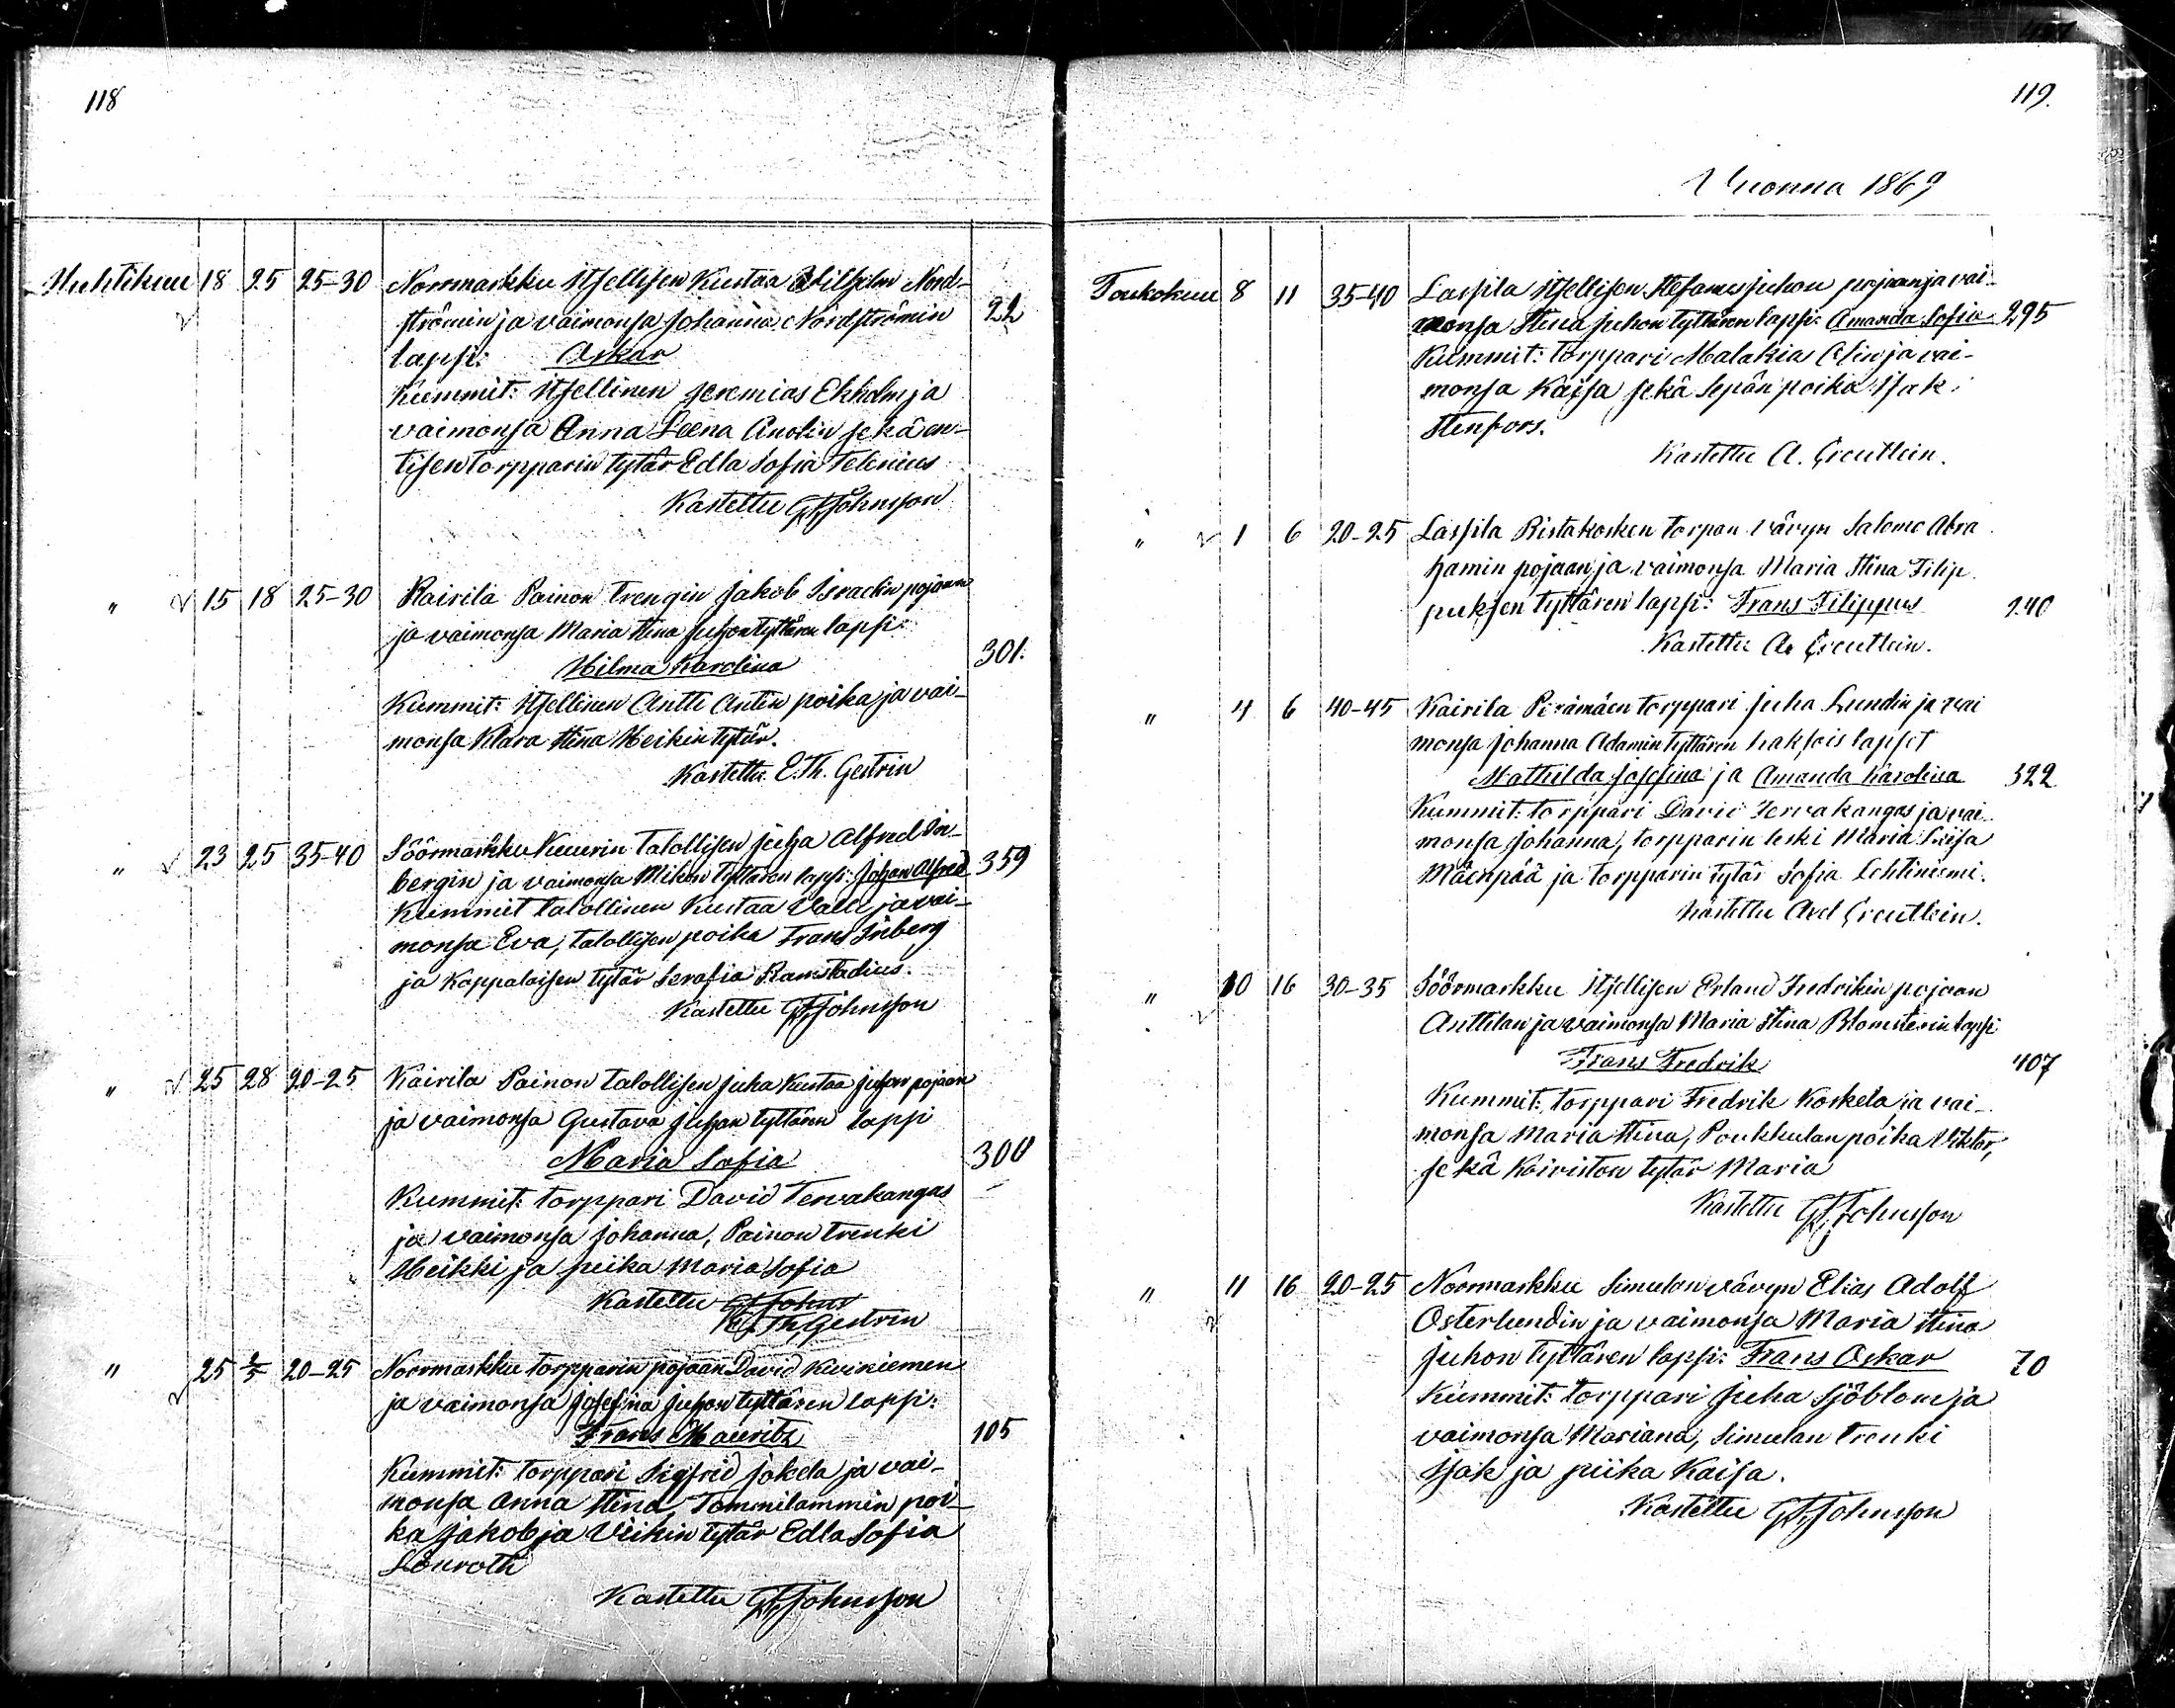 118
Huhtikuu 18 25 25-30 Normarkku Itsellisen Kustaa Wilhelm Nord-
strömin ja vaimonsa Johanna Nordströmin 22
lapsi: Oskar
Kummit: Itsellinen Jeremias Ekholm ja
vaimonsa Anna Leena Anolin sekä en-
tisen torpparin tytär Edla Sofia Telenius
Kastettu G. F. Johnsson
" 15 18 25-30 Kairila Painon trengin Jakob Israelin pojaan
ja vaimonsa Maria Stina Juhon tyttären lapsi: 301.
Hilma Karolina
Kummit: Itsellinen Antti Antin poika ja vai-
monsa Klara Stina Heikin tytär.
Kastettu E. Th. Gestrin
" 23 25 35-40 Söörmarkku Kuurin talollisen Juha Alfred In-
bergin ja vaimonsa Mikon tyttären lapsi: Johan Alfred 359
Kummit talollinen Kustaa Valli ja vai-
monsa Eva, talollisen poika Frans Inberg
ja Kappalaisen tytär Serafia Ramstadius.
Kastettu G. F. Johnsson
" 25 28 20-25 Kairila Painon talollisen Juha Kustaa Juhan pojaan
ja vaimonsa Gustava Juhan tyttären lapsi
Maria Sofia 300
Kummit: torppari David Tervakangas
ja vaimonsa Johanna, Painon trenki
Heikki ja piika Maria Sofia
Kastettu G F Johns
E. Th. Gestrin
" 25 2/5 20-25 Noormarkku torpparin pojaan David Kuiniemen
ja vaimonsa Josefina Juhon tyttären lapsi:
Frans Mauritz 105
Kummit: torppari Sigfrid Jokela ja vai-
monsa Anna Stina, Tommilammin poi-
ka Jakob ja Viikin tytär Edla Sofia
Lönroth
Kastettu G. F. Johnsson
119.
Vuonna 1869
Toukokuu 8 11 35-40 Lassila Itsellisen Stefanus Juhon pojaan ja vai-
monsa Stina Juhon tyttären lapsi: Amanda Sofia 295
Kummit: torppari Malakias Alin ja vai-
monsa Kaisa sekä Sepän poika Isak
Stenfors.
Kastettu A. Grentlein.
" 1 6 20-25 Lassila Ristakosken torpan vävyn Salomo Abra
hamin pojaan ja vaimonsa Maria Stina Filip
puksen tyttären lapsi: Frans Filippus 240
Kastettu A. Grentlein.
" 4 6 40-45 Kairila Perämäen torppari Juha Lundin ja vai
monsa Johanna Adamin tyttären kaksois lapset
Mathilda Josefina ja Amanda Karolina 322
Kummit: torppari David Tervakangas ja vai-
monsa Johanna, torpparin leski Maria Lisa
Mäenpää ja torpparin tytär Sofia Lehtiniemi.
Kastettu Axel Grentlein.
" 10 16 30-35 Söörmarkku Itsellisen Erland Fredrikin pojaan
Anttilan ja vaimonsa Maria Stina Blomsterin lapsi
Frans Fredrik 407
Kummit: torppari Fredrik Koskela ja vai-
monsa Maria Stina, Poukkulan poika Viktor,
sekä Koiviston tytär Maria
Kastettu G. F. Johnsson
" 11 16 20-25 Noormarkku Simulan vävyn Elias Adolf
Österlundin ja vaimonsa Maria Stina
Juhon tyttären lapsi: Frans Oskar 70
Kummit: torppari Juha Sjöblom ja
vaimonsa Mariana, Simulan trenki
Isak ja piika Kaisa.
Kastettu G. F. Johnsson